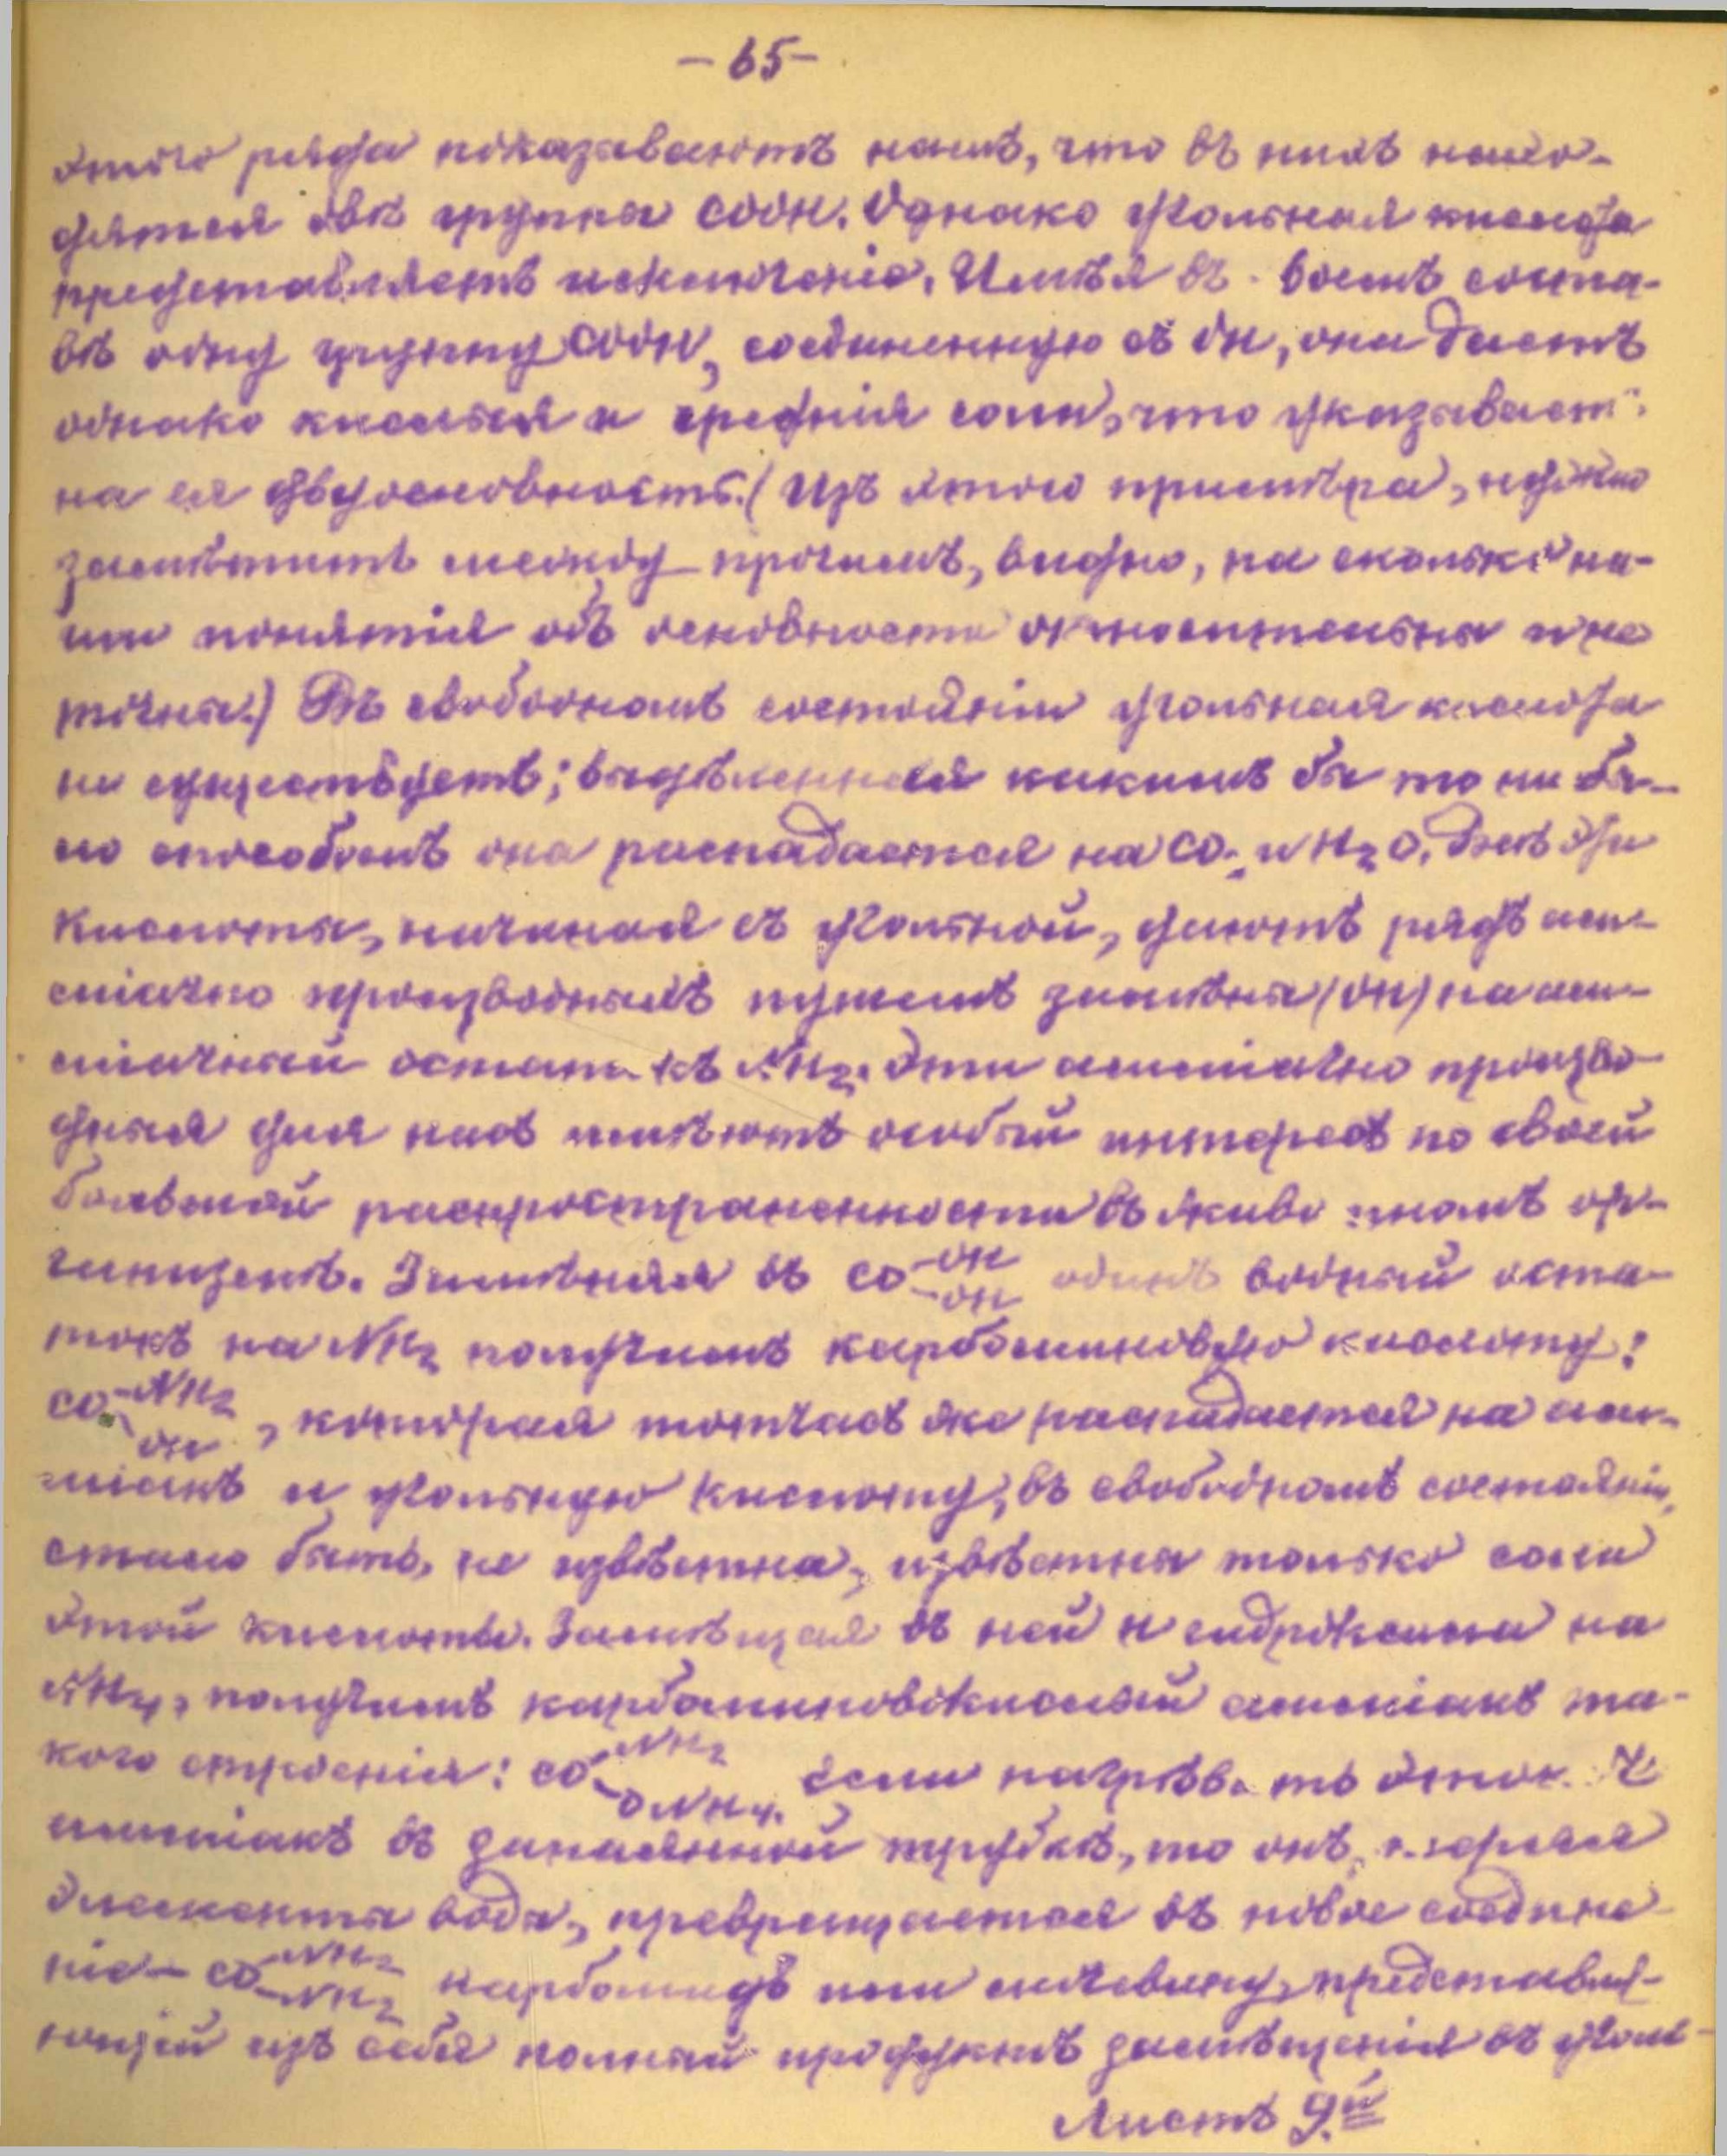 - 65 -
этого ряда показываютъ намъ, что въ нихъ нахо-
дятся двѣ группы COOH. Однако угольная кислота
представляетъ исключеніе. Имѣя въ своемъ соста-
вѣ одну группу COOH, соединенную съ OH, она даетъ
однако кислыя и среднія соли, что указываетъ
на ея двуосновность. (Изъ этого примѣра, нужно
замѣтить между прочимъ, видно, на сколько на-
ши понятія объ основности относительны и не
точны.) Въ свободномъ состояніи угольная кислота
не существуетъ; выдѣленная какимъ бы то ни бы-
ло способомъ она распадается на CO₂ и H₂O. Всѣ эти
кислоты, начиная съ угольной, даютъ рядъ ам-
міачно производныхъ путемъ замѣны (OH) на ам-
міачный остатокъ NH₂. Эти амміачно произво-
дныя для насъ имѣютъ особый интересъ по своей
большой распространенности въ животномъ ор-
ганизмѣ. Замѣняя въ CO-OH-OH одинъ водный оста-
токъ на NH₂ получимъ карбаминовую кислоту:
CO-NH₂-OH, которая тотчасъ же распадается на ам-
міакъ и угольную кислоту; въ свободномъ состояніи,
стало быть, не извѣстна, извѣстны только соли
этой кислоты. Замѣщая въ ней H гидроксила на
NH₄, получимъ карбаминовокислый амміакъ та-
кого строенія: CO-NH₂-ONH₄. Если нагрѣвать этотъ
амміакъ въ запаянной трубкѣ, то онъ, теряя
элементы воды, превращается въ новое соедине-
ніе - CO-NH₂-NH₂ карбамидъ или мочевину, представля-
ющій изъ себя полный продуктъ замѣщенія въ уголь-
Листъ 9.й